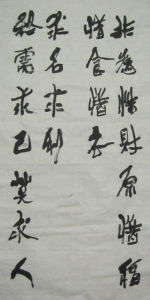 非為惜財原惜福
惜食惜衣
求名求利
終需求己莫求人